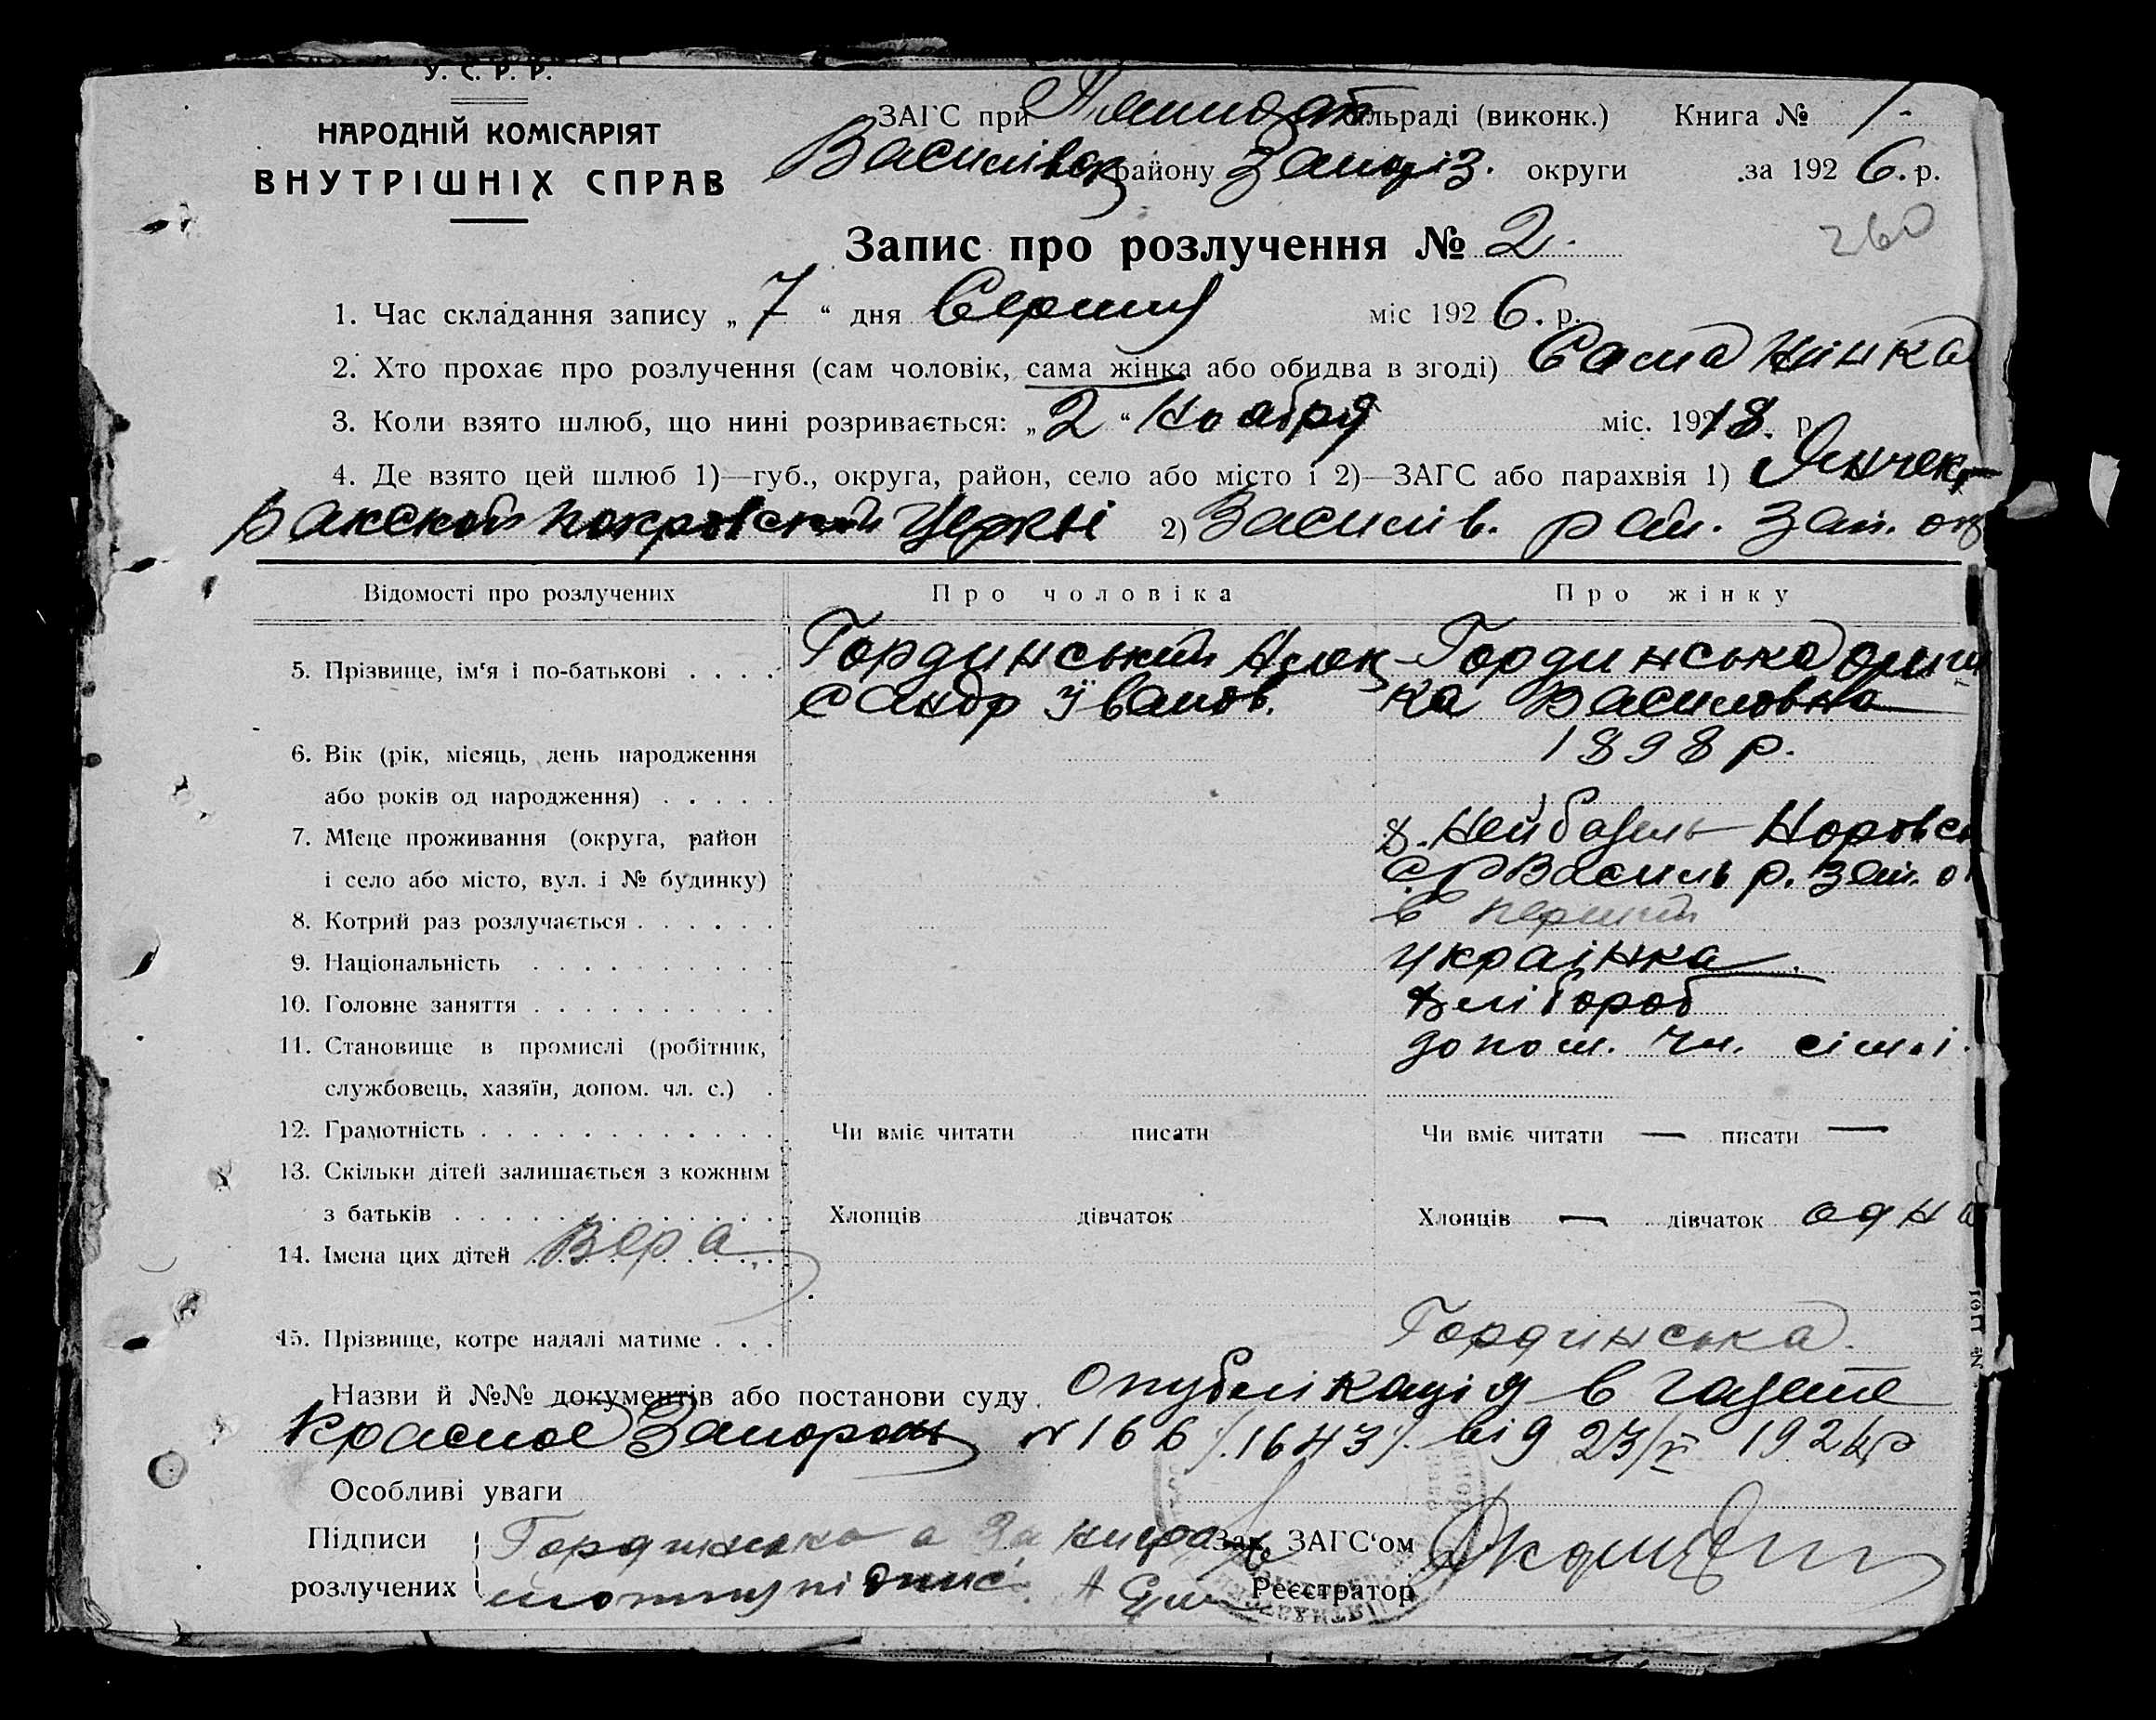 У. С. Р. Р.
НАРОДНІЙ КОМІСАРІЯТ
ВНУТРІШНІХ СПРАВ
ЗАГС при сільраді (виконк.) Книга № 1 -
Василівськ району Запоріз. округи за 1926. р.
Запис про розлучення № 2.
260
1. Час складання запису „ 7 “ дня Серпня міс 1926. р.
2. Хто прохає про розлучення (сам чоловік, сама жінка або обидва в згоді) Сама жінка
3. Коли взято шлюб, що нині розривається: „ 2 “ Ноября міс. 1918. р.
4. Де взято цей шлюб 1)—губ., округа, район, село або місто і 2)—ЗАГС або парахвія 1) Янчек-
ракской покровский Церкві 2) Василів. рай. Зап. окр
Відомості про розлучених Про чоловіка Про жінку
5. Прізвище, ім‘я і по-батькові . . . . Гординський Алек Гординська
сандр Іванов. ка Василовна
6. Вік (рік, місяць, день народження 1898 р.
або років од народження) . . . . .
7. Місце проживання (округа, район Нейбазель
і село або місто, вул. і № будинку) с/р Василь р. Зап. о
8. Котрий раз розлучається . . . . . . в перший
9. Національність . . . . . . . . . . українка
10. Головне заняття . . . . . . . . . . хлібороб
11. Становище в промислі (робітник, допом. чл. сім.і.
службовець, хазяїн, допом. чл. с.) .
12. Грамотність . . . . . . . . . . . . Чи вміє читати писати Чи вміє читати — писати —
13. Скільки дітей залишається з кожним
з батьків . . . . . . . . . . . . . Хлопців дівчаток Хлопців — дівчаток одна
14. Імена цих дітей Вера
15. Прізвище, котре надалі матиме . . . Гординська.
Назви й №№ документів або постанови суду Опублікація в газете
Красное Запорожье № 166 /1643/. від 23/VII 1926 р
Особливі уваги
Підписи Гординська а За Зав. ЗАГС‘ом
розлучених Реєстратор
№ 1101